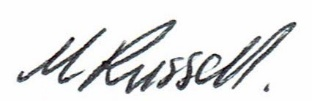 M Russell.